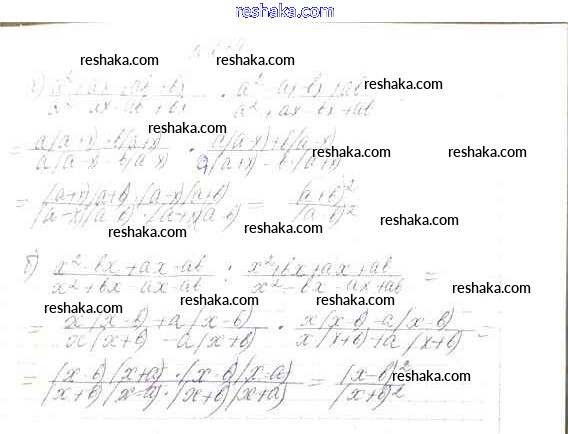 reshaka.com
reshaka.com reshaka.com
а) a² + ax + ab + bx / a² - ax - ab + bx · a² - ax - bx + ab / a² + ax - bx - ab
reshaka.com
reshaka.com
= a(a+x) + b(a+x) / a(a-x) - b(a-x) · a(a-x) + b(a-x) / a(a+x) - b(a+x)
reshaka.com reshaka.com
= (a+x)(a+b)·(a-x)(a+b) / (a-x)(a-b)·(a+x)(a-b) = (a+b)² / (a-b)²
reshaka.com
reshaka.com reshaka.com
б) x² - bx + ax - ab / x² + bx - ax - ab · x² + bx + ax + ab / x² - bx - ax + ab =
reshaka.com
reshaka.com reshaka.com
= x(x-b) + a(x-b) / x(x+b) - a(x+b) · x(x-b) - a(x-b) / x(x+b) + a(x+b) =
= (x-b)(x+a)·(x-b)(x-a) / (x+b)(x-a)·(x+b)(x+a) = (x-b)² / (x+b)²
reshaka.com
reshaka.com